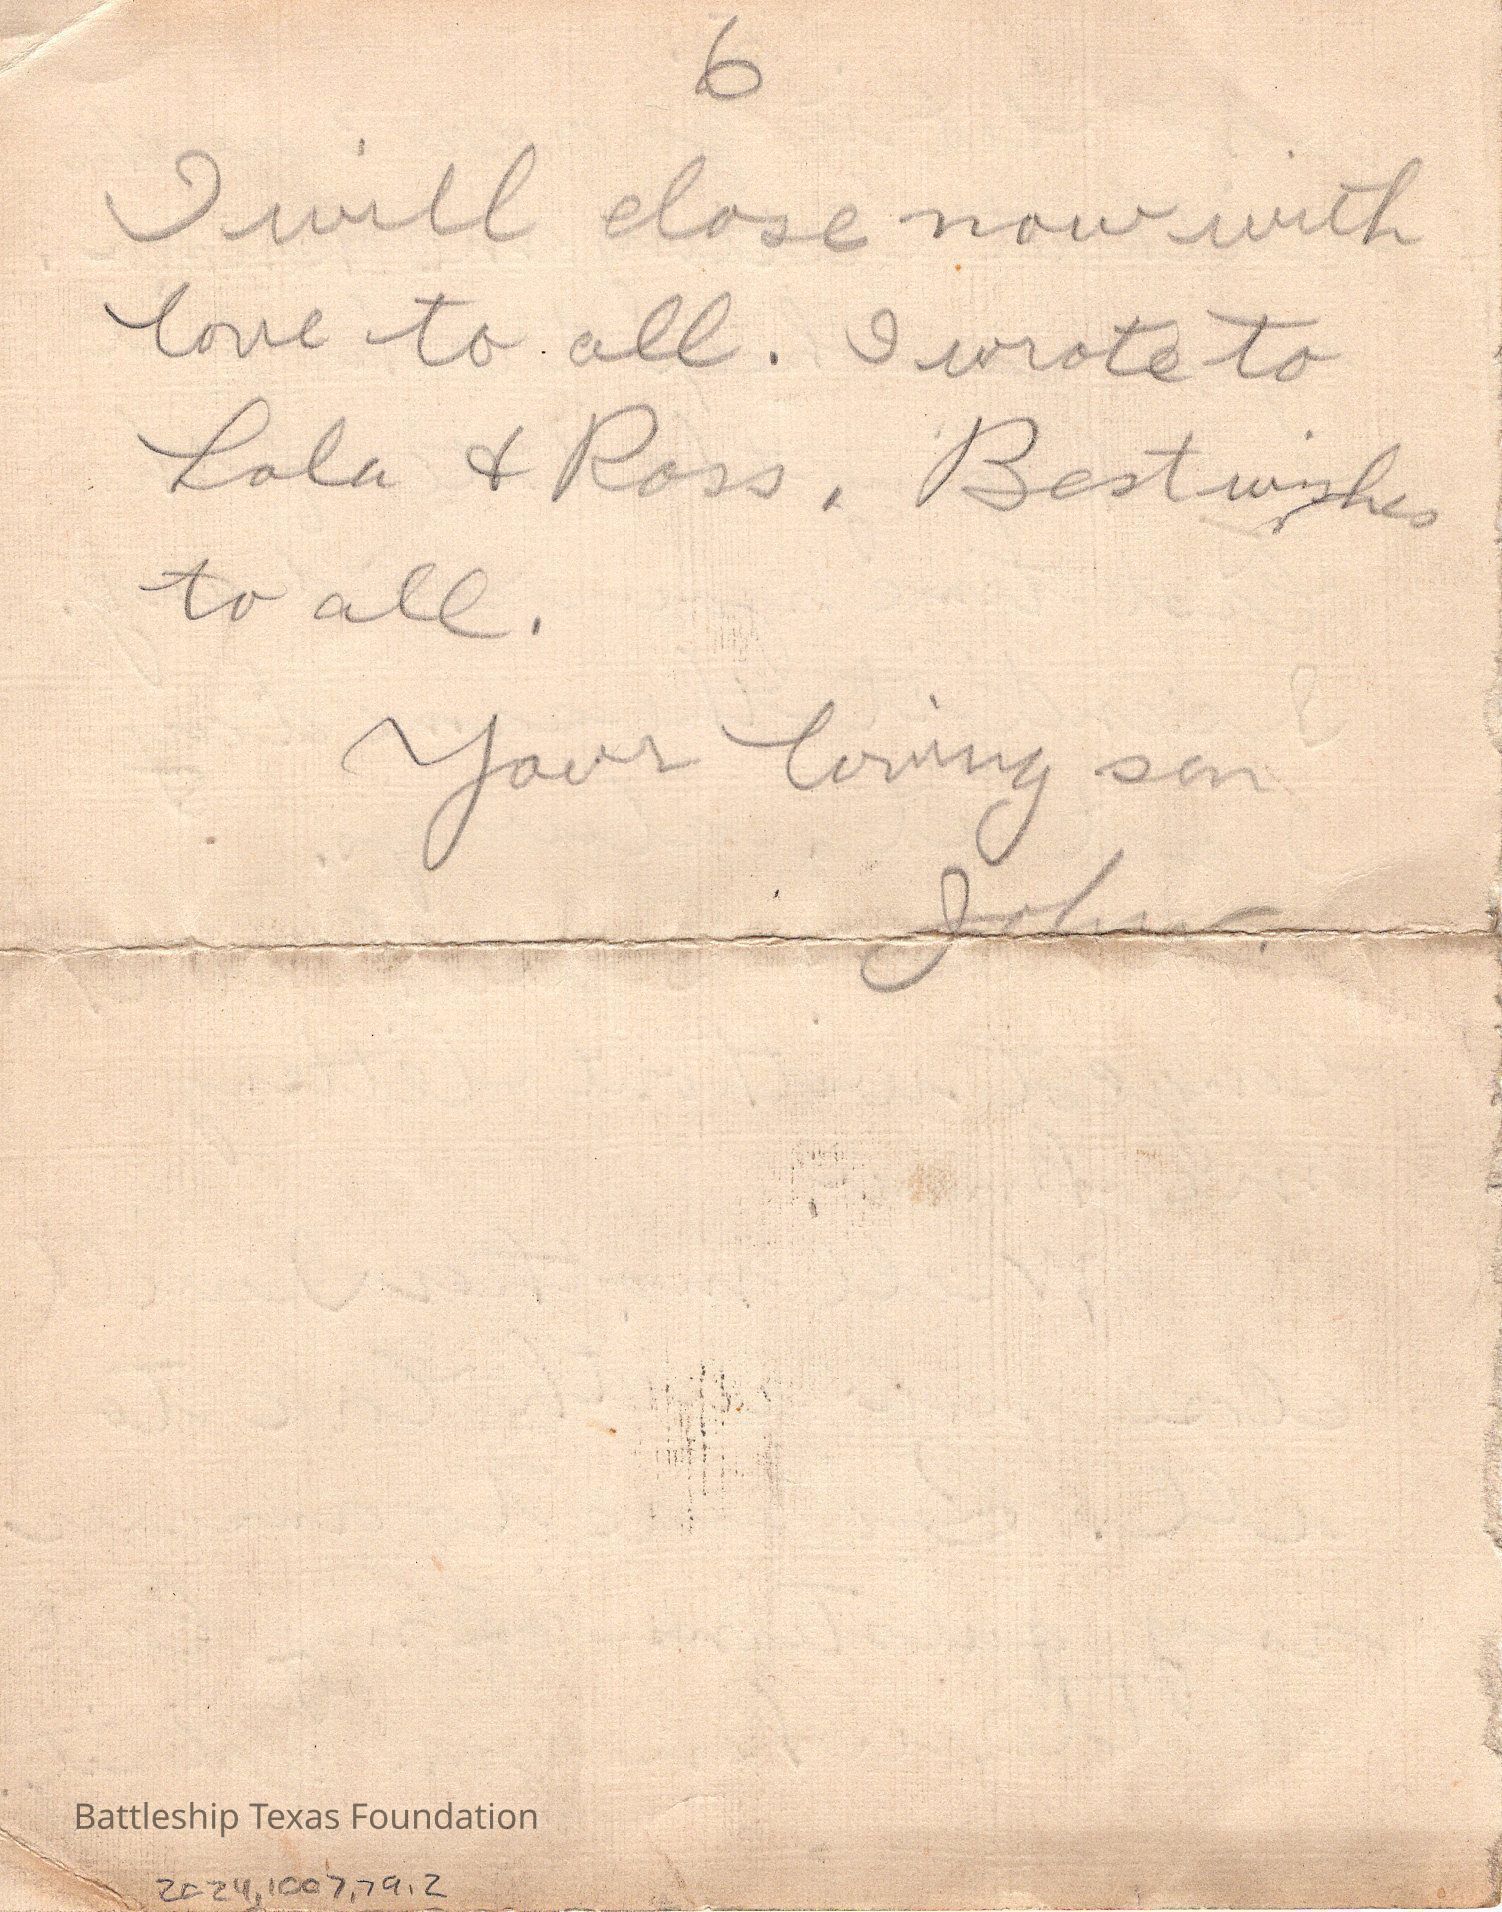 6
I will close now with
love to all. I wrote to
Lola & Ross. Best wishes
to all.
Your loving son
John.
Battleship Texas Foundation
2024.1007.79.2